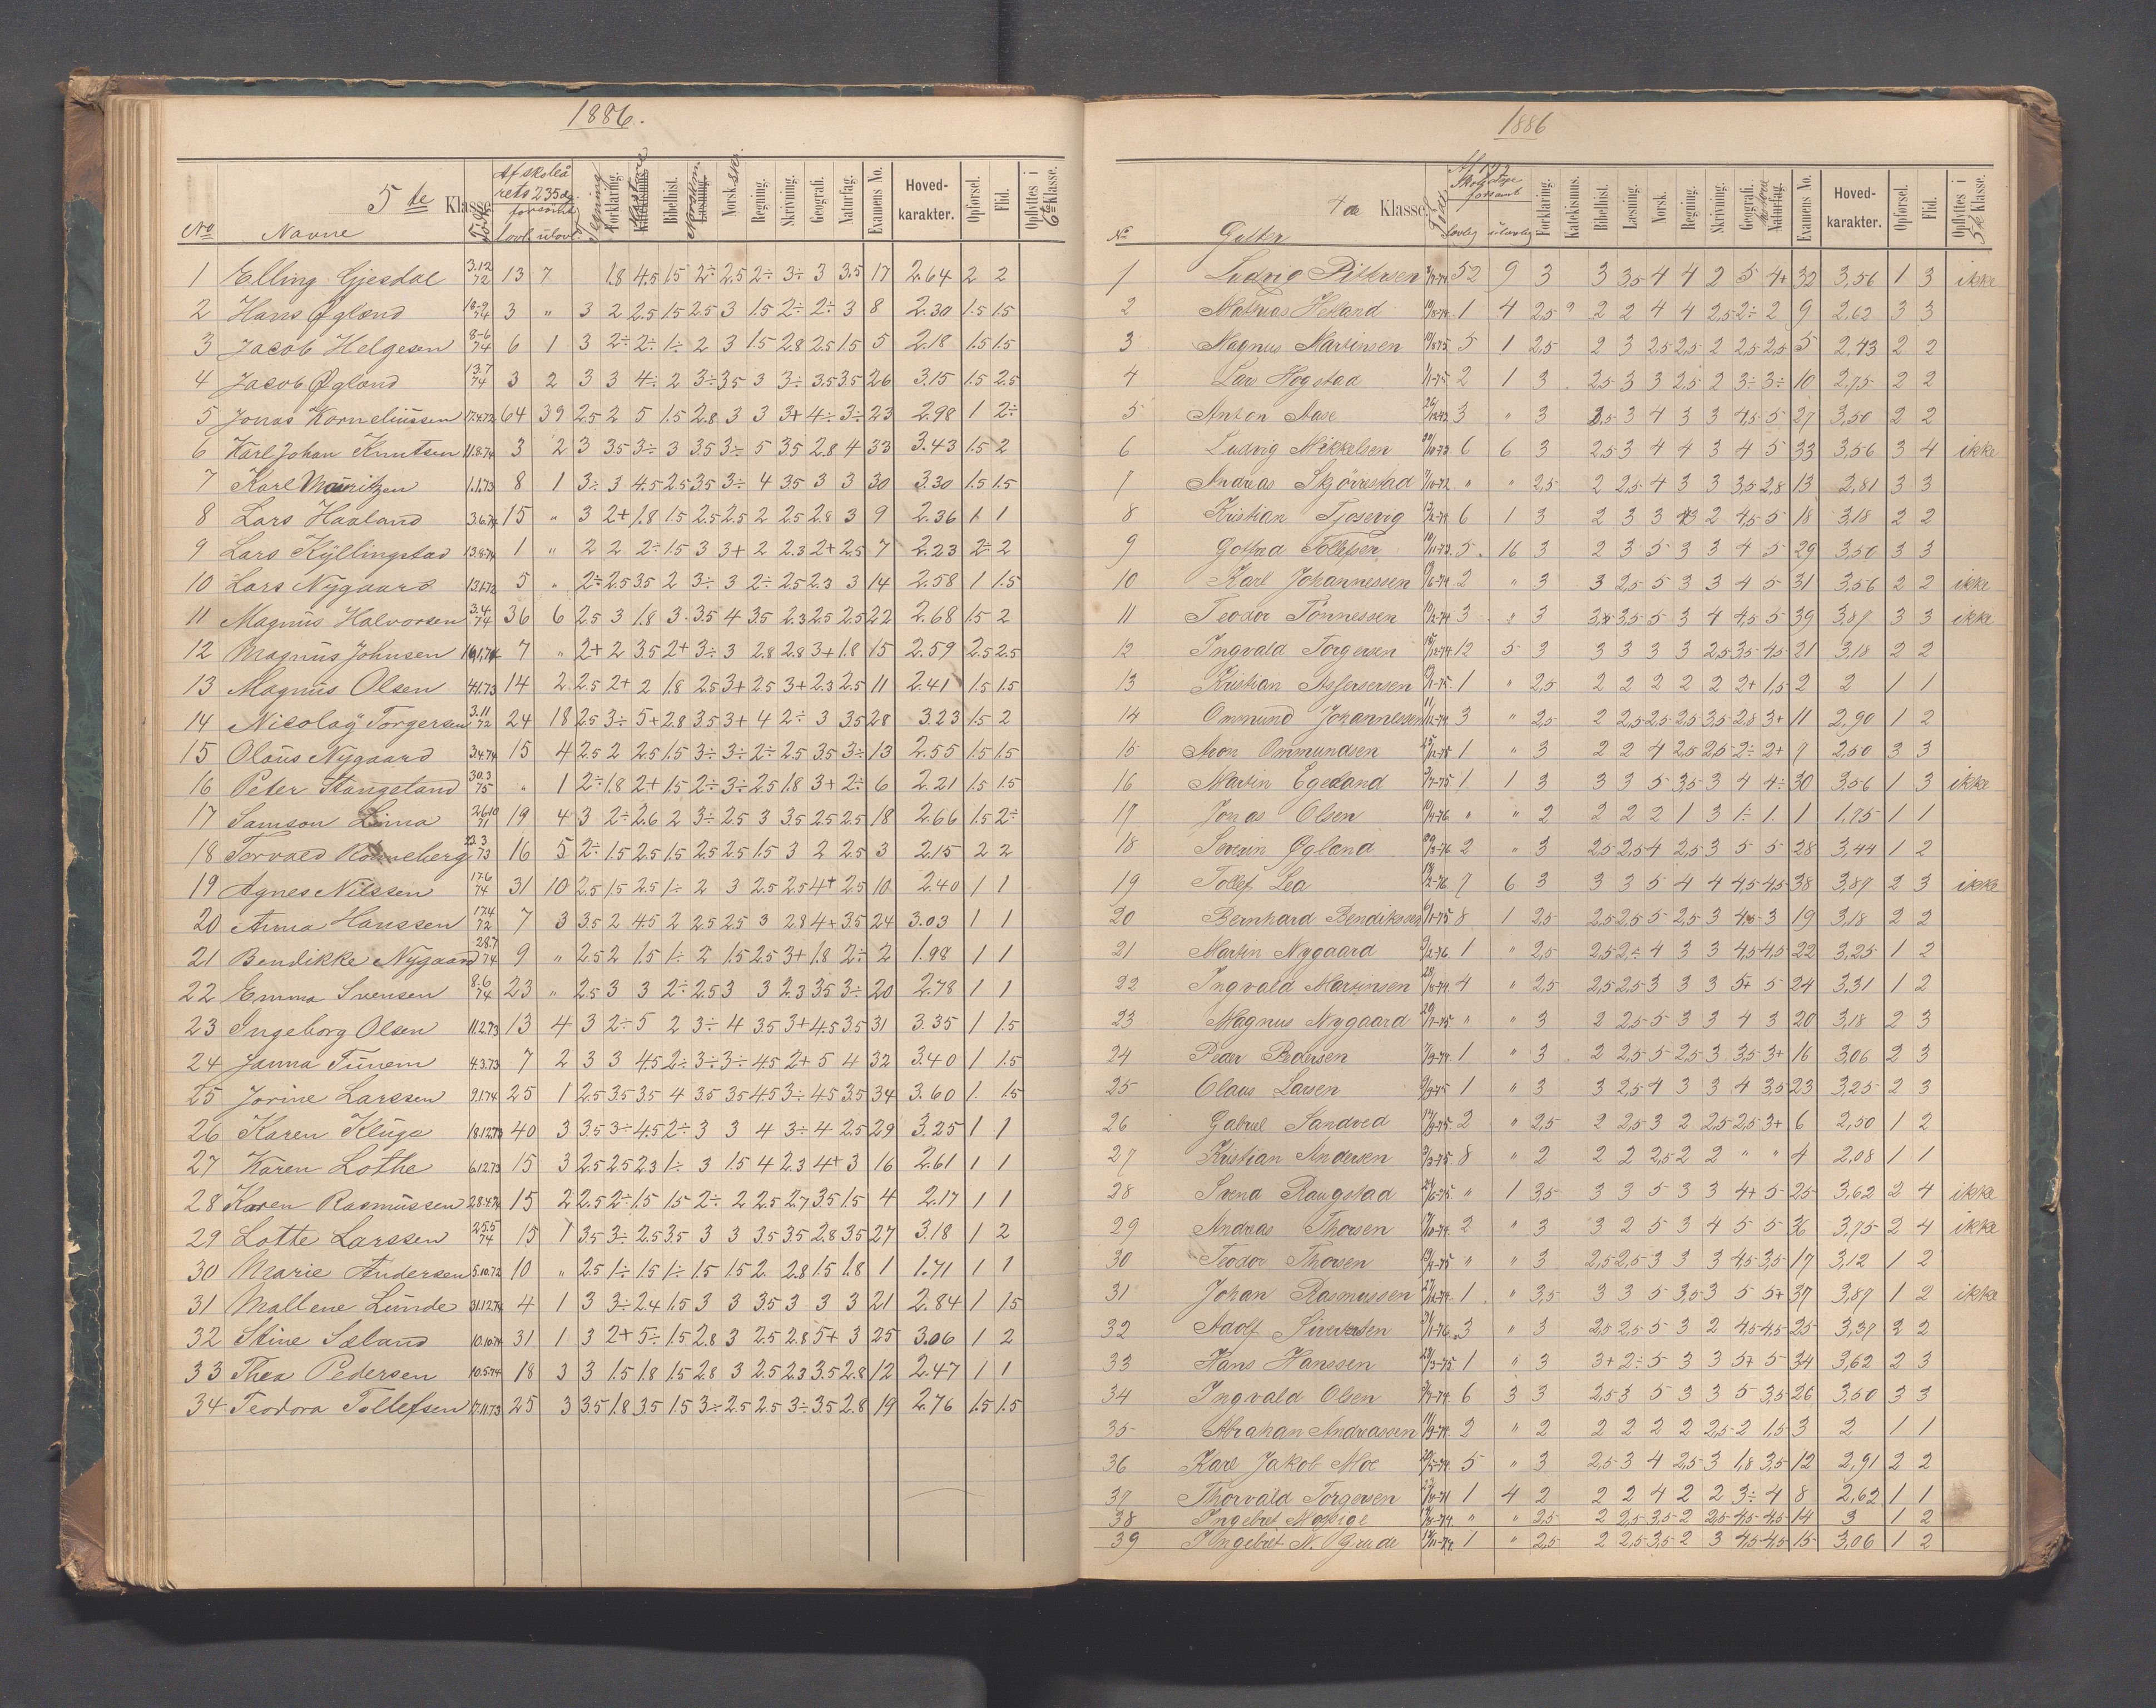 1886.
5te Klasse
No Navne Født Af skoleårets 235 dg. forsömt lovl. ulovl. Tegning Forklaring. Historie Bibelhist. Norsk skr. Regning. Skrivning. Geografi. Naturfag. Examens No. Hoved-karakter. Opførsel. Flid. Opflyttes i 6te Klasse.
1 Elling Gjesdal 3.12 72 13 7 1.8 4.5 1.5 2÷ 2.5 2÷ 3÷ 3 3.5 17 2.64 2 2
2 Hans Øglænd 18-9 74 3 " 3 2 2.5 1.5 2.5 3 1.5 2÷ 2÷ 3 8 2.30 1.5 1.5
3 Jacob Helgesen 8-6 74 6 1 3 2÷ 2÷ 1÷ 2 3 1.5 2.8 2.5 1.5 5 2.18 1.5 1.5
4 Jacob Øglænd 13.7 74 3 2 3 3 4÷ 2 3÷ 3.5 3 3÷ 3.5 3.5 26 3.15 1.5 2.5
5 Jonas Korneliussen 17.4.72 64 39 2.5 2 5 1.5 2.8 3 3 3+ 4÷ 3÷ 23 2.98 1 2÷
6 Karl Johan Knutsen 11.8.74 3 2 3 3.5 3÷ 3 3.5 3÷ 5 3.5 2.8 4 33 3.43 1.5 2
7 Karl Mauritzen 1.1.73 8 1 3÷ 3 4.5 2.5 3.5 3÷ 4 3.5 3 3 30 3.30 1.5 1.5
8 Lars Haaland 3.6.74 15 " 3 2+ 1.8 1.5 2.5 2.5 2 2.5 2.8 3 9 2.36 1 1
9 Lars Kyllingstad 13.8.74 1 " 2 2 2÷ 1.5 3 3+ 2 2.3 2+ 2.5 7 2.23 2÷ 2
10 Lars Nygaard 13.1.72 5 " 2÷ 2.5 3.5 2 3÷ 3 2÷ 2.5 2.3 3 14 2.58 1 1.5
11 Magnus Halvorsen 3.4 74 36 6 2.5 3 1.8 3 3.5 4 3.5 2.3 2.5 2.5 22 2.68 1.5 2
12 Magnus Johnsen 16.1.74 7 " 2+ 2 3.5 2+ 3÷ 3 2.8 2.8 3+ 1.8 15 2.59 2.5 2.5
13 Magnus Olsen 4.1.73 14 2 2.5 2+ 2 1.8 2.5 3+ 2.5 3+ 2.3 2.5 11 2.41 1.5 1.5
14 Nicolay Torgersen 3.11 72 24 18 2.5 3÷ 5+ 2.8 3.5 3+ 4 2÷ 3 3.5 28 3.23 1.5 2
15 Olaus Nygaard 3.4.74 15 4 2.5 2 2.5 1.5 3÷ 3÷ 2÷ 2.5 3.5 3÷ 13 2.55 1.5 1.5
16 Peter Stangeland 30.3 75 " 1 2÷ 1.8 2+ 1.5 2÷ 3÷ 2.5 1.8 3+ 2÷ 6 2.21 1.5 1.5
17 Samson Lima 26.10 71 19 4 3 2÷ 2.6 2 3÷ 2.5 3 3.5 2.5 2.5 18 2.66 1.5 2÷
18 Torvald Rønneberg 22.3 73 16 5 2÷ 1.5 2.5 1.5 2.5 2.5 1.5 3 2 2.5 3 2.15 2 2
19 Agnes Nilssen 17.6 74 31 10 2.5 1.5 2.5 1÷ 2 3 2.5 2.5 4+ 2.5 10 2.40 1 1
20 Anna Hanssen 17.4 72 7 3 3.5 2 4.5 2 2.5 2.5 3 2.8 4+ 3.5 24 3.03 1 1
21 Bendikke Nygaard 28.7 74 9 " 2.5 2 1.5 1÷ 2 1.5 2.5 3+ 1.8 2÷ 2 1.98 1 1
22 Emma Svensen 8.6 74 23 " 2.5 3 3 2÷ 2.5 3 3 2.3 3.5 3÷ 20 2.78 1 1
23 Ingeborg Olsen 11.2.73 13 4 3 2÷ 5 2 3÷ 4 3.5 3+ 4.5 3.5 31 3.35 1 1.5
24 Janna Tunem 4.3.73 7 2 3 3 4.5 2÷ 3÷ 3÷ 4.5 2+ 5 4 32 3.40 1 1.5
25 Jorine Larssen 9.1.74 25 1 2.5 3.5 3.5 4 3.5 3.5 4.5 3÷ 4.5 3.5 34 3.60 1. 1.5
26 Karen Kluge 18.12.73 40 3 3.5 3÷ 4.5 2÷ 3 3 4 3÷ 4 2.5 29 3.25 1 1
27 Karen Lothe 6.12.73 15 3 2.5 2.5 2.3 1÷ 3 1.5 4 2.3 4+ 3 16 2.61 1 1
28 Karen Rasmussen 28.4.74 15 2 2.5 2÷ 1.5 1.5 2÷ 2 2.5 2.7 3.5 1.5 4 2.17 1 1
29 Lotte Larssen 25.5 74 15 1 3.5 3÷ 2.5 3.5 3 3 3.5 3.5 2.8 3.5 27 3.18 1 2
30 Marie Andersen 5.10.72 10 " 2.5 1÷ 1.5 1÷ 1.5 1.5 2. 2.8 1.5 1.8 1 1.71 1 1
31 Mallene Lunde 31.12.74 4 1 3 3÷ 2.4 1.5 3 3 3.5 3 3 3 21 2.84 1 1.5
32 Stine Sæland 10.10.74 31 1 3 2+ 5÷ 1.5 2.8 3 2.5 2.8 5+ 3 25 3.06 1 2
33 Thea Pedersen 10.5.74 18 3 3 1.5 1.8 1.5 2.8 3 2.5 2.3 3.5 2.8 12 2.47 1 1
34 Teodora Tollefsen 17.11.73 25 3 3.5 1.8 3.5 1.5 3÷ 2.5 2.5 3÷ 3.5 2.8 19 2.76 1.5 1.5
1886
4de Klasse
No Gutter lovlig ulovlig Forklaring. Katekismus. Bibelhist. Læsning. Norsk. Regning. Skrivning. Geografi. Naturfag. Examens No. Hoved-karakter. Opførsel. Flid. Opflyttes i 5te Klasse.
1 Ludvig Pittersen 52 9 3 3 3,5 4 4 2 5 4+ 32 3,56 1 3 ikke
2 Mathias Hetland 1 4 2,5 2 2 4 4 2,5 2÷ 2 9 2,62 3 3
3 Magnus Martinsen 5 1 2,5 2 3 2,5 2,5 2 2,5 2,5 5 2,43 2 2
4 Lars Hogstad 2 1 3 2,5 3 3 2,5 2 3÷ 3÷ 10 2,75 2 2
5 Anton Aase 3 " 3 3,5 3 4 3 3 4,5 5 27 3,50 2 2
6 Ludvig Mikkelsen 6 6 3 2,5 3 4 4 3 4 5 33 3,56 3 4 ikke
7 Andreas Skjörestad " " 2,5 2 2,5 4 3 3 3,5 2,8 13 2,81 3 3
8 Kristian Tjosevig 6 1 3 2 3 3 3 2 4,5 5 18 3,18 2 2
9 Gotfred Tollefsen 5 16 3 2 3 5 3 3 4 5 29 3,50 3 3
10 Karl Johannessen 2 " 3 3 2,5 5 3 3 4 5 31 3,56 2 2 ikke
11 Teodor Tönnessen 3 " 3 3,5 3,5 5 3 4 4,5 5 39 3,87 3 3 ikke
12 Ingvald Torgersen 12 5 3 3 3 3 3 2,5 3,5 4,5 21 3,18 2 2
13 Kristian 1 " 2,5 2 2 2 2 2 2+ 1,5 2 2 1 1
14 Ommund Johannessen 3 " 2,5 2 2,5 2,5 2,5 3,5 2,8 3+ 11 2,90 1 2
15 Ommundsen 1 " 3 2 2 4 2,5 2,5 2÷ 2+ 7 2,50 3 3
16 Martin Egeland 1 1 3 3 3 5 3,5 3 4 4÷ 30 3,56 1 3 ikke
17 Jonas Olsen " " 2 2 2 2 1 3 1÷ 1. 1 1,75 1 1
18 Severin Øglænd 2 " 3 2,5 2,5 4 2,5 3 5 5 28 3,44 1 2
19 Tollef Lea 7 6 3 3 3 5 4 4 4,5 4,5 38 3,87 2 3 ikke
20 Bernhard Bendiksen 8 1 2,5 2,5 2,5 5 2,5 3 4,5 3 19 3,18 2 2
21 Martin Nygaard 1 " 2,5 2,5 2÷ 4 3 3 4,5 4,5 22 3,25 1 2
22 Ingvald Martinsen 4 " 2,5 2,5 2,5 3 3 3 5+ 5 24 3,31 1 2
23 Magnus Nygaard " " 3 2 2,5 5 3 3 4 3 20 3,18 2 3
24 Peder Pedersen 1 " 3 2 2,5 5 2,5 3 3,5 3+ 16 3,06 2 3
25 Olaus Larsen 1 " 3 3 2,5 4 3 3 4 3,5 23 3,25 2 3
26 Gabriel Sandved 2 " 2,5 2 2,5 3 2 2,5 2,5 3+ 6 2,50 1 2
27 Kristian Andersen 8 " 2 2 2 2,5 2 2 " " 4 2,08 1 1
28 Svend Raugstad " 1 3,5 3 3 5 3 3 4+ 5 25 3,62 2 4 ikke
29 Andreas Thorsen 2 " 3 3 2 5 3 4 5 5 36 3,75 2 4 ikke
30 Teodor Thorsen " " 3 2,5 2,5 3 3 3 4,5 3,5 17 3,12 1 2
31 Johan Rasmussen 1 " 3,5 3 3 5 3,5 3 5 5+ 37 3,87 1 2 ikke
32 Adolf Sivertsen 3 " 3 2,5 2,5 5 3 2 4,5 4,5 25 3,37 2 2
33 Hans Hanssen 1 " 3 3+ 2÷ 5 3 3 5+ 5 34 3,62 2 3
34 Ingvald Olsen 6 3 3 2,5 3 5 3 3 5 3,5 26 3,50 3 3
35 Abraham Andreassen 2 " 2 2 2 2 2 2,5 2 1,5 3 2 1 1
36 Karl Jakob Moe 5 " 3 2,5 3 4 2,5 3 1,8 3,5 12 2,91 2 2
37 Thorvald Torgersen 1 4 2 2 2 4 2 2 3÷ 4 8 2,62 1 1
38 Ingebret Mossige " " 2,5 2 2,5 3,5 2 2,5 4,5 4,5 14 3 1 2
39 Ingebret N. Grude 1 " 2,5 2 2,5 3,5 2 3 4,5 4,5 15 3,06 1 2